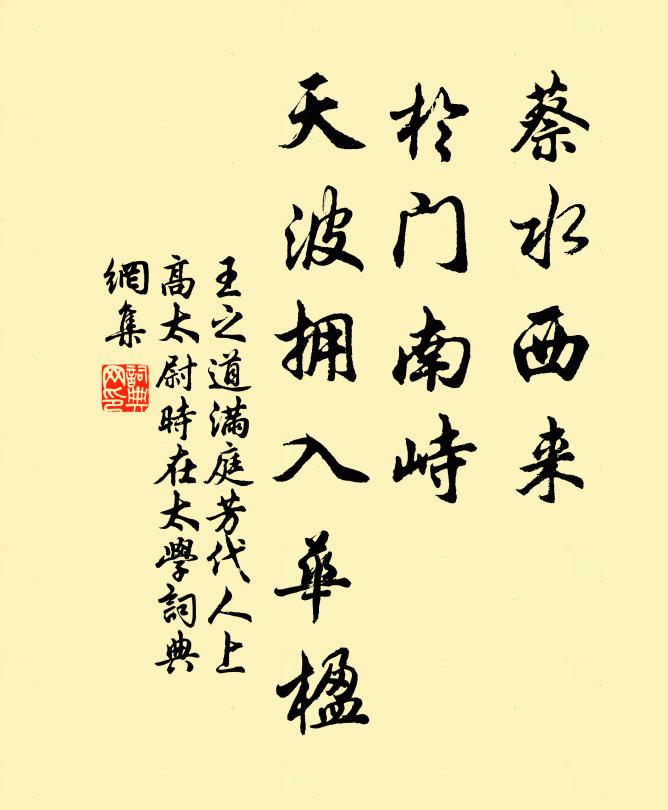 蔡水西来
於门南峙
天波拥入华楹
王之道满庭芳代人上
高太尉時在太學詞典
網集
詞典网印